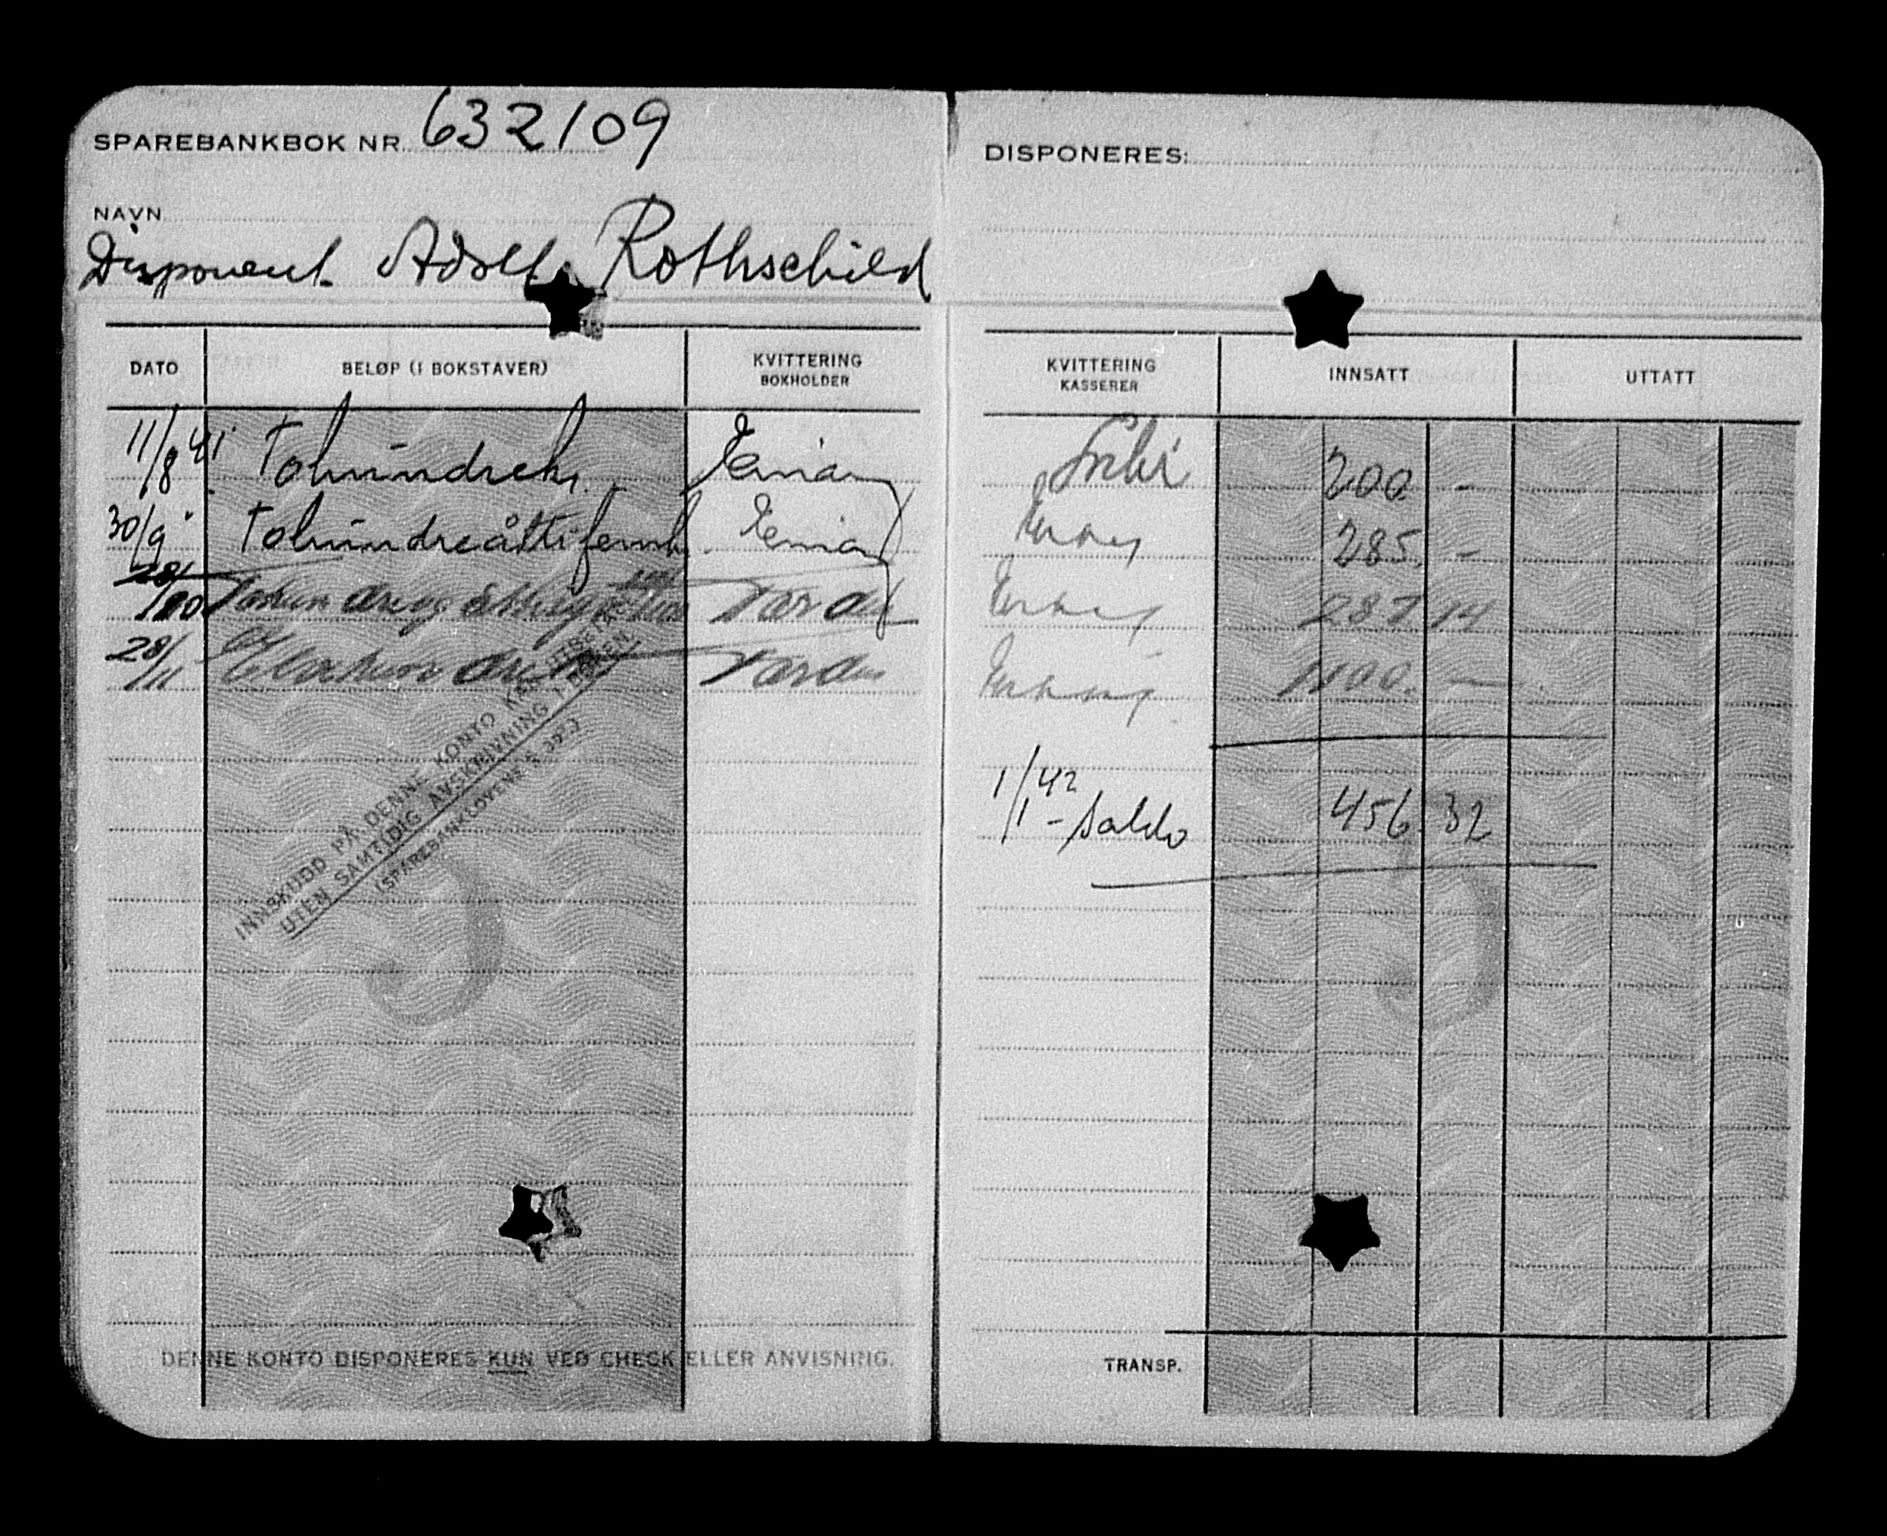 SPAREBANKBOK NR. 632109
NAVN
Disponent Adolf Rothschild
DATO BELØP (I BOKSTAVER) KVITTERING BOKHOLDER
11/8 41 Tohundrekr.
30/9 " Tohundreåttifemkr.
28/10
28/11
INNSKUDD PÅ DENNE KONTO KAN
UTEN SAMTIDIG AVSKRIVNING I
(SPAREBANKLOVENS § 39.)
DENNE KONTO DISPONERES KUN VED CHECK ELLER ANVISNING.
DISPONERES:
KVITTERING KASSERER INNSATT UTTATT
200 -
285. -
287 14
1100. -
1/1 42 - Saldo 456. 32
TRANSP.